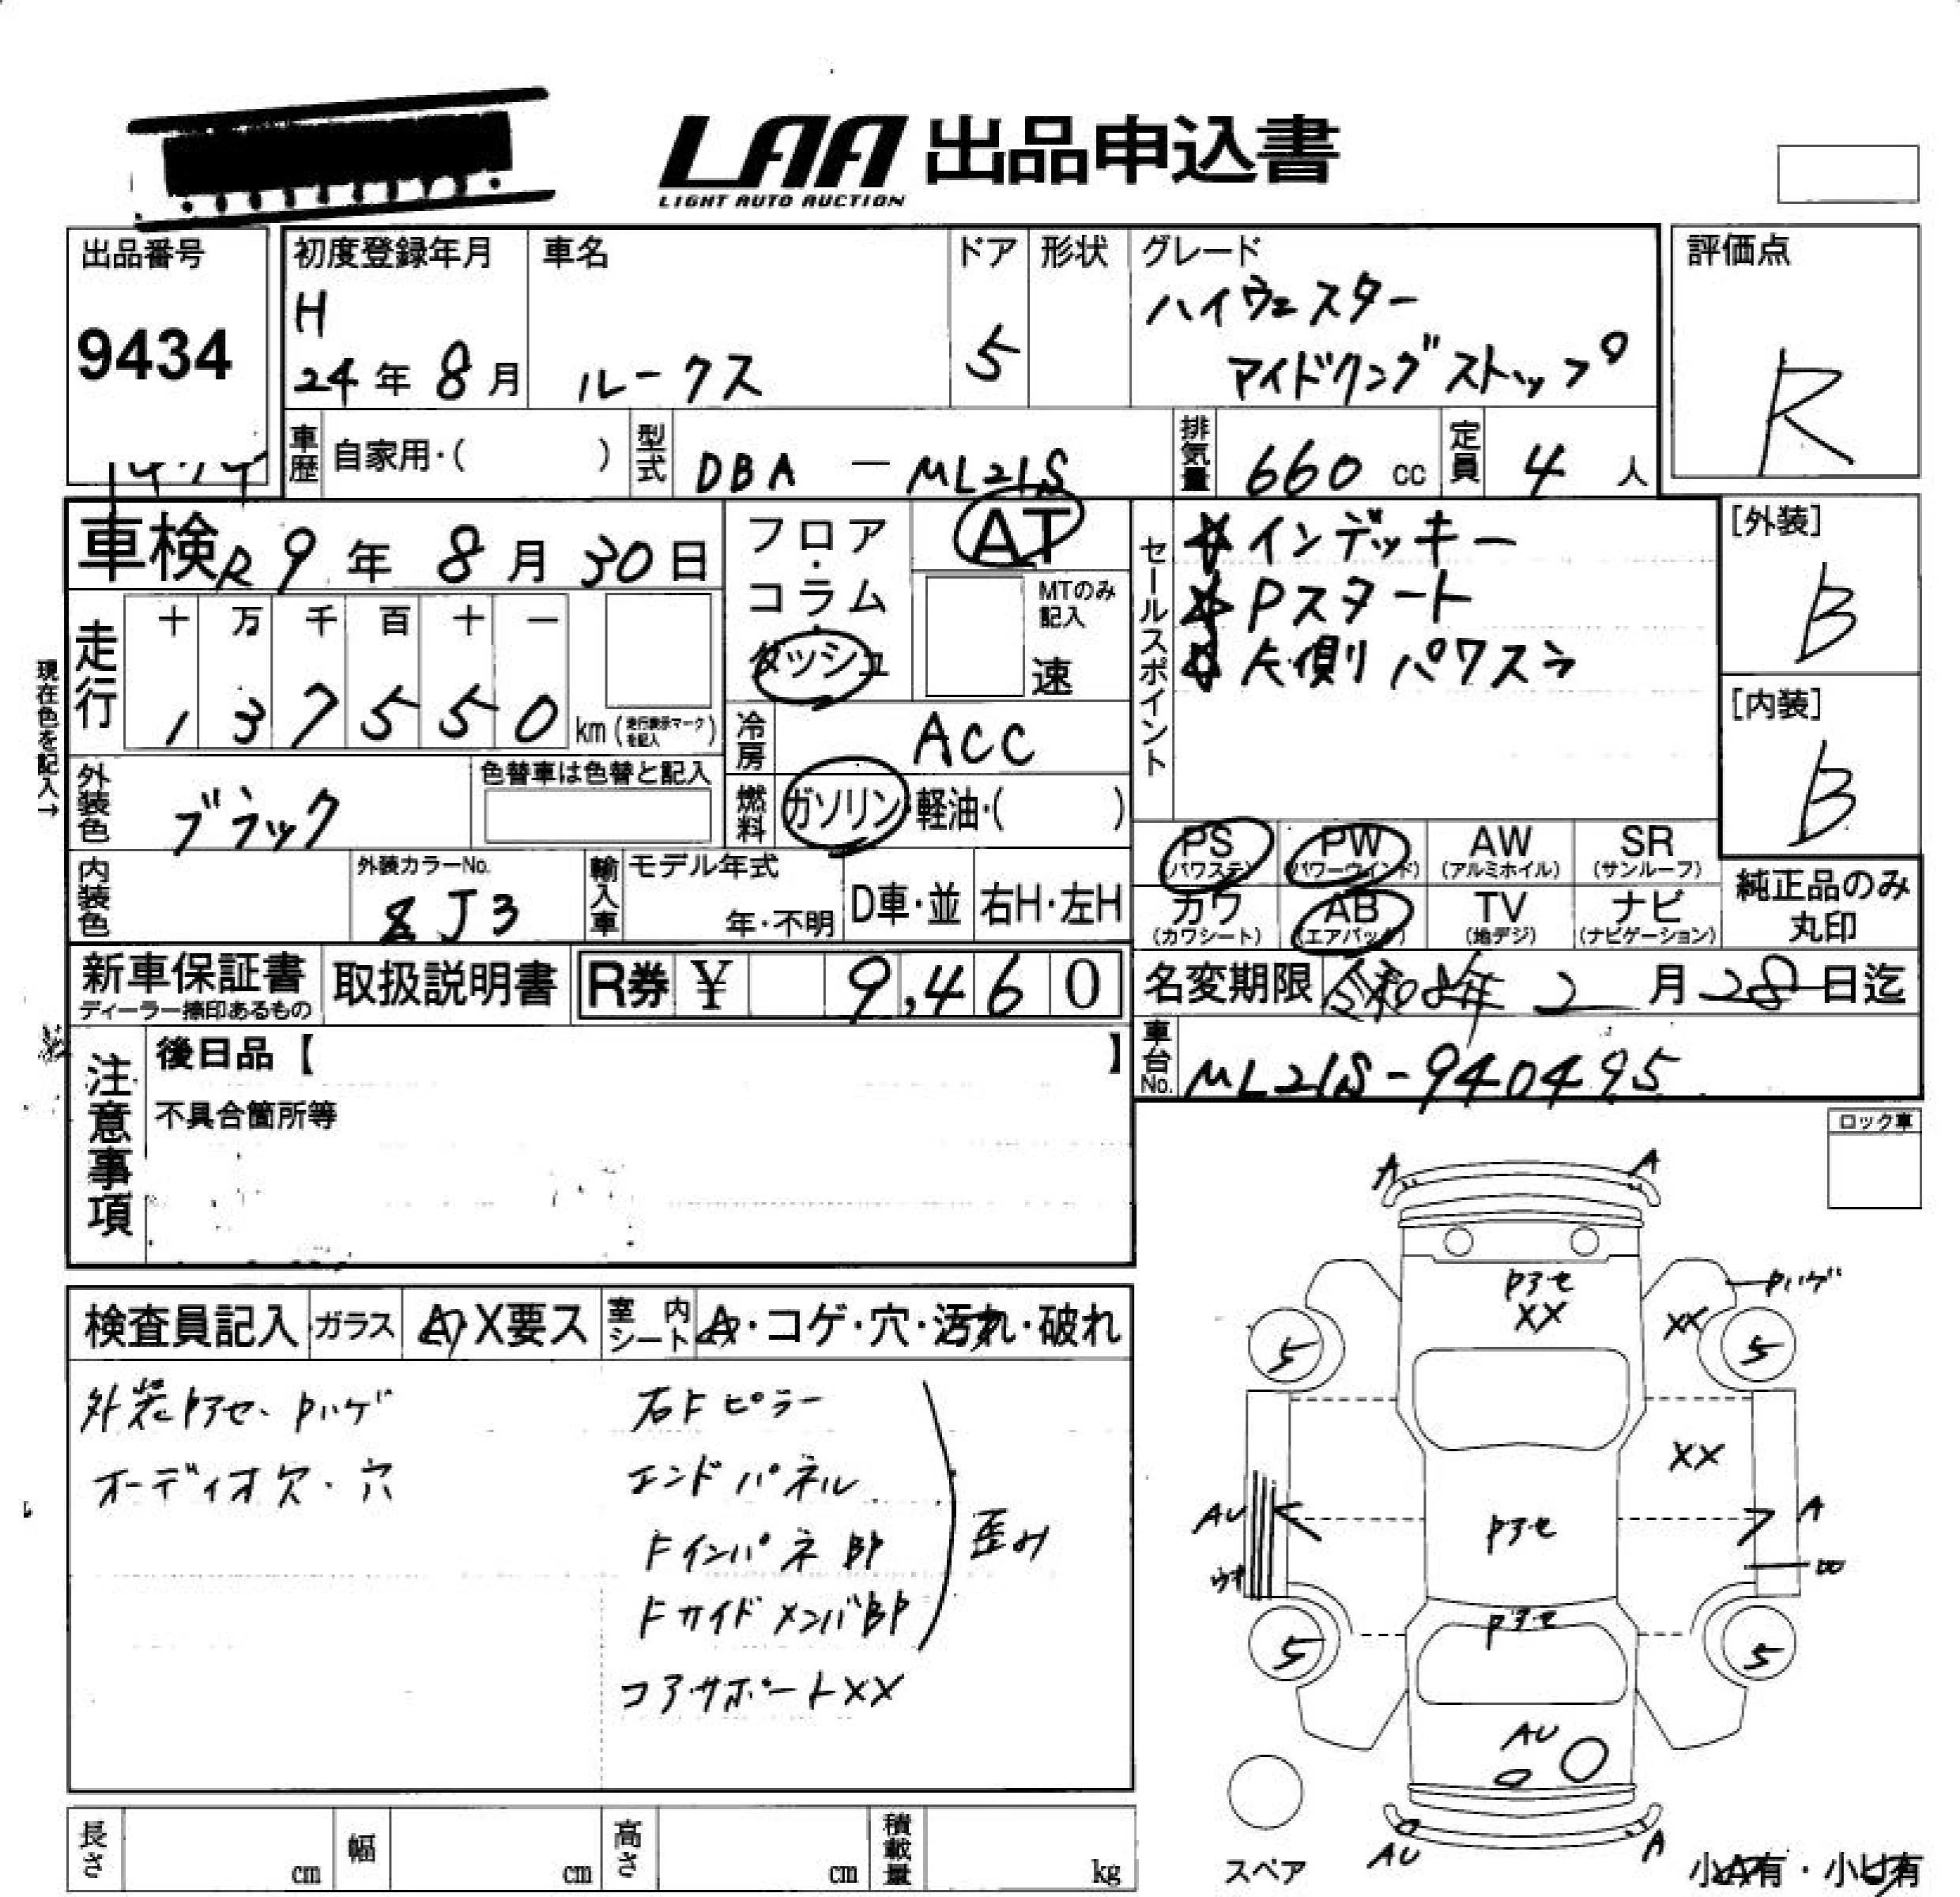 LAA 出品申込書
LIGHT AUTO AUCTION
出品番号
9434
初度登録年月
H
24年 8月
車名
ルークス
ドア
5
形状
グレード
ハイウェスター
アイドリングストップ
評価点
R
車歴 自家用・( )
型式 DBA - ML21S
排気量 660 cc
定員 4 人
車検 R 9年 8月 30日
走行 十 万 千 百 十 一
1 3 7 5 5 0 km (走行表示マークを記入)
現在色を記入→
外装色 ブラック
色替車は色替と記入
内装色
外装カラーNo.
ZJ3
輸入車 モデル年式
年・不明
D車・並
右H・左H
フロア・コラム・ダッシュ
AT
MTのみ記入
速
冷房 ACC
燃料 ガソリン・軽油・( )
セールスポイント
☆インテッキー
☆Pスタート
☆片側パワスラ
[外装]
B
[内装]
B
PS (パワステ)
PW (パワーウインド)
AW (アルミホイル)
SR (サンルーフ)
カワ (カワシート)
AB (エアバック)
TV (地デジ)
ナビ (ナビゲーション)
純正品のみ丸印
新車保証書
ディーラー捺印あるもの
取扱説明書
R券 ¥ 9,460
名変期限 令和8年 2月28日迄
車台No. ML21S-940495
注意事項
後日品【 】
不具合箇所等
ロック車
検査員記入
ガラス A X要ス
室内シート A・コゲ・穴・汚れ・破れ
外装Pアセ、Pハゲ
オーディオ欠・穴
右Fピラー
エンドパネル
Fインパネ部
Fサイドメンバ部
歪み
コアサポートXX
A A
Pアセ
XX
Pハゲ
XX
5 5
XX
AU
A
Pアセ
Pアセ
5 5
AU
AU A
スペア
小A有・小U有
長さ cm
幅 cm
高さ cm
積載量 kg